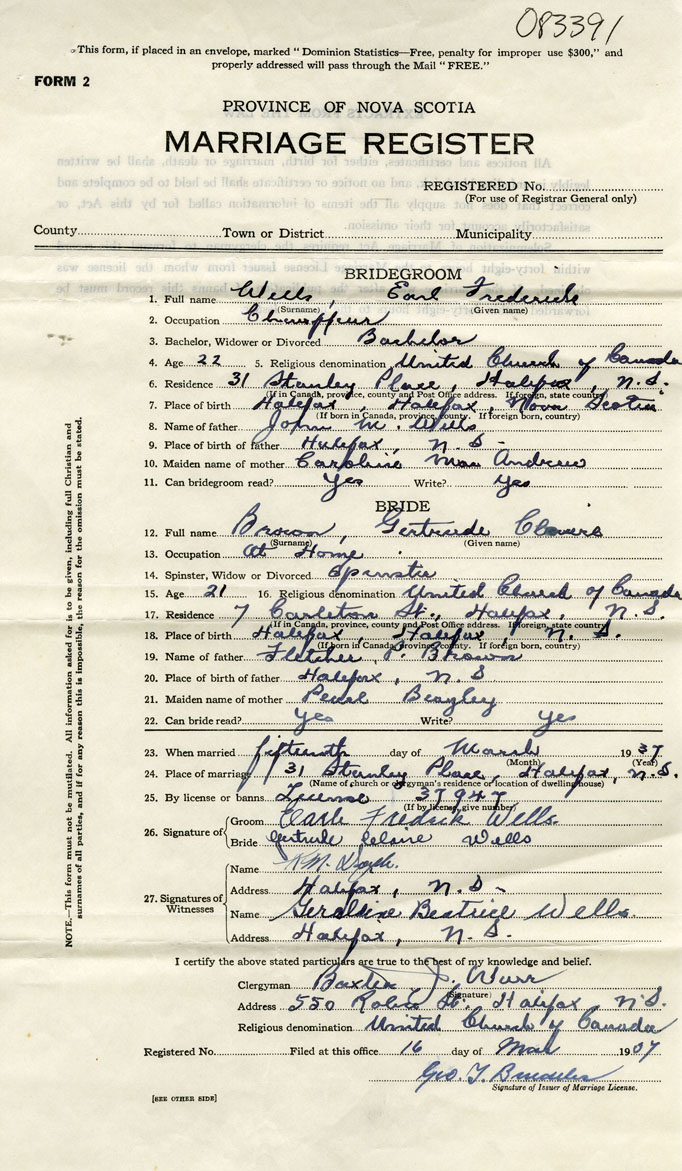 083391
This form, if placed in an envelope, marked "Dominion Statistics—Free, penalty for improper use $300," and
properly addressed will pass through the Mail "FREE."
FORM 2
PROVINCE OF NOVA SCOTIA
MARRIAGE REGISTER
REGISTERED No.
(For use of Registrar General only)
County Town or District Municipality
BRIDEGROOM
1. Full name Wells, Earl Frederick
(Surname) (Given name)
2. Occupation Chauffeur
3. Bachelor, Widower or Divorced Bachelor
4. Age 22 5. Religious denomination United Church of Canada
6. Residence 31 Stanley Place, Halifax, N.S.
(If in Canada, province, county and Post Office address. If foreign, state country)
7. Place of birth Halifax, Halifax, Nova Scotia
(If born in Canada, province, county. If foreign, country)
8. Name of father John M. Wells
9. Place of birth of father Halifax, N.S.
10. Maiden name of mother Caroline Mac Andrew
11. Can bridegroom read? Yes Write? Yes
BRIDE
12. Full name Brown, Gertrude
(Surname) (Given name)
13. Occupation At Home
14. Spinster, Widow or Divorced Spinster
15. Age 21 16. Religious denomination United Church of Canada
17. Residence 7 Carleton St., Halifax, N.S.
(If in Canada, province, county and Post Office address. If foreign, state country)
18. Place of birth Halifax, Halifax N.S.
(If born in Canada, province, county. If foreign, country)
19. Name of father Fletcher P. Brown
20. Place of birth of father Halifax, N.S
21. Maiden name of mother Pearl Beazley
22. Can bride read? Yes Write? Yes
23. When married fifteenth day of March 1937
(Month) (Year)
24. Place of marriage 31 Stanley Place, Halifax, N.S.
(Name of church or clergyman's residence or location of dwelling house)
25. By license or banns License 37947
(If by license, give number)
26. Signature of
Groom Earle Fredrick Wells.
Bride Gertrude Claire Wells
27. Signatures of Witnesses
Name
Address Halifax, N.S.
Name Geraldine Beatrice Wells.
Address Halifax, N.S.
I certify the above stated particulars are true to the best of my knowledge and belief.
Clergyman J.
(Signature)
Address 550 Robie St. Halifax N.S.
Religious denomination United Church of Canada
Registered No. Filed at this office 16 day of Mar 1937
Geo. T.
Signature of Issuer of Marriage License.
[SEE OTHER SIDE]
NOTE.—This form must not be mutilated. All information asked for is to be given, including full Christian and
surnames of all parties, and if for any reason this is impossible, the reason for the omission must be stated.